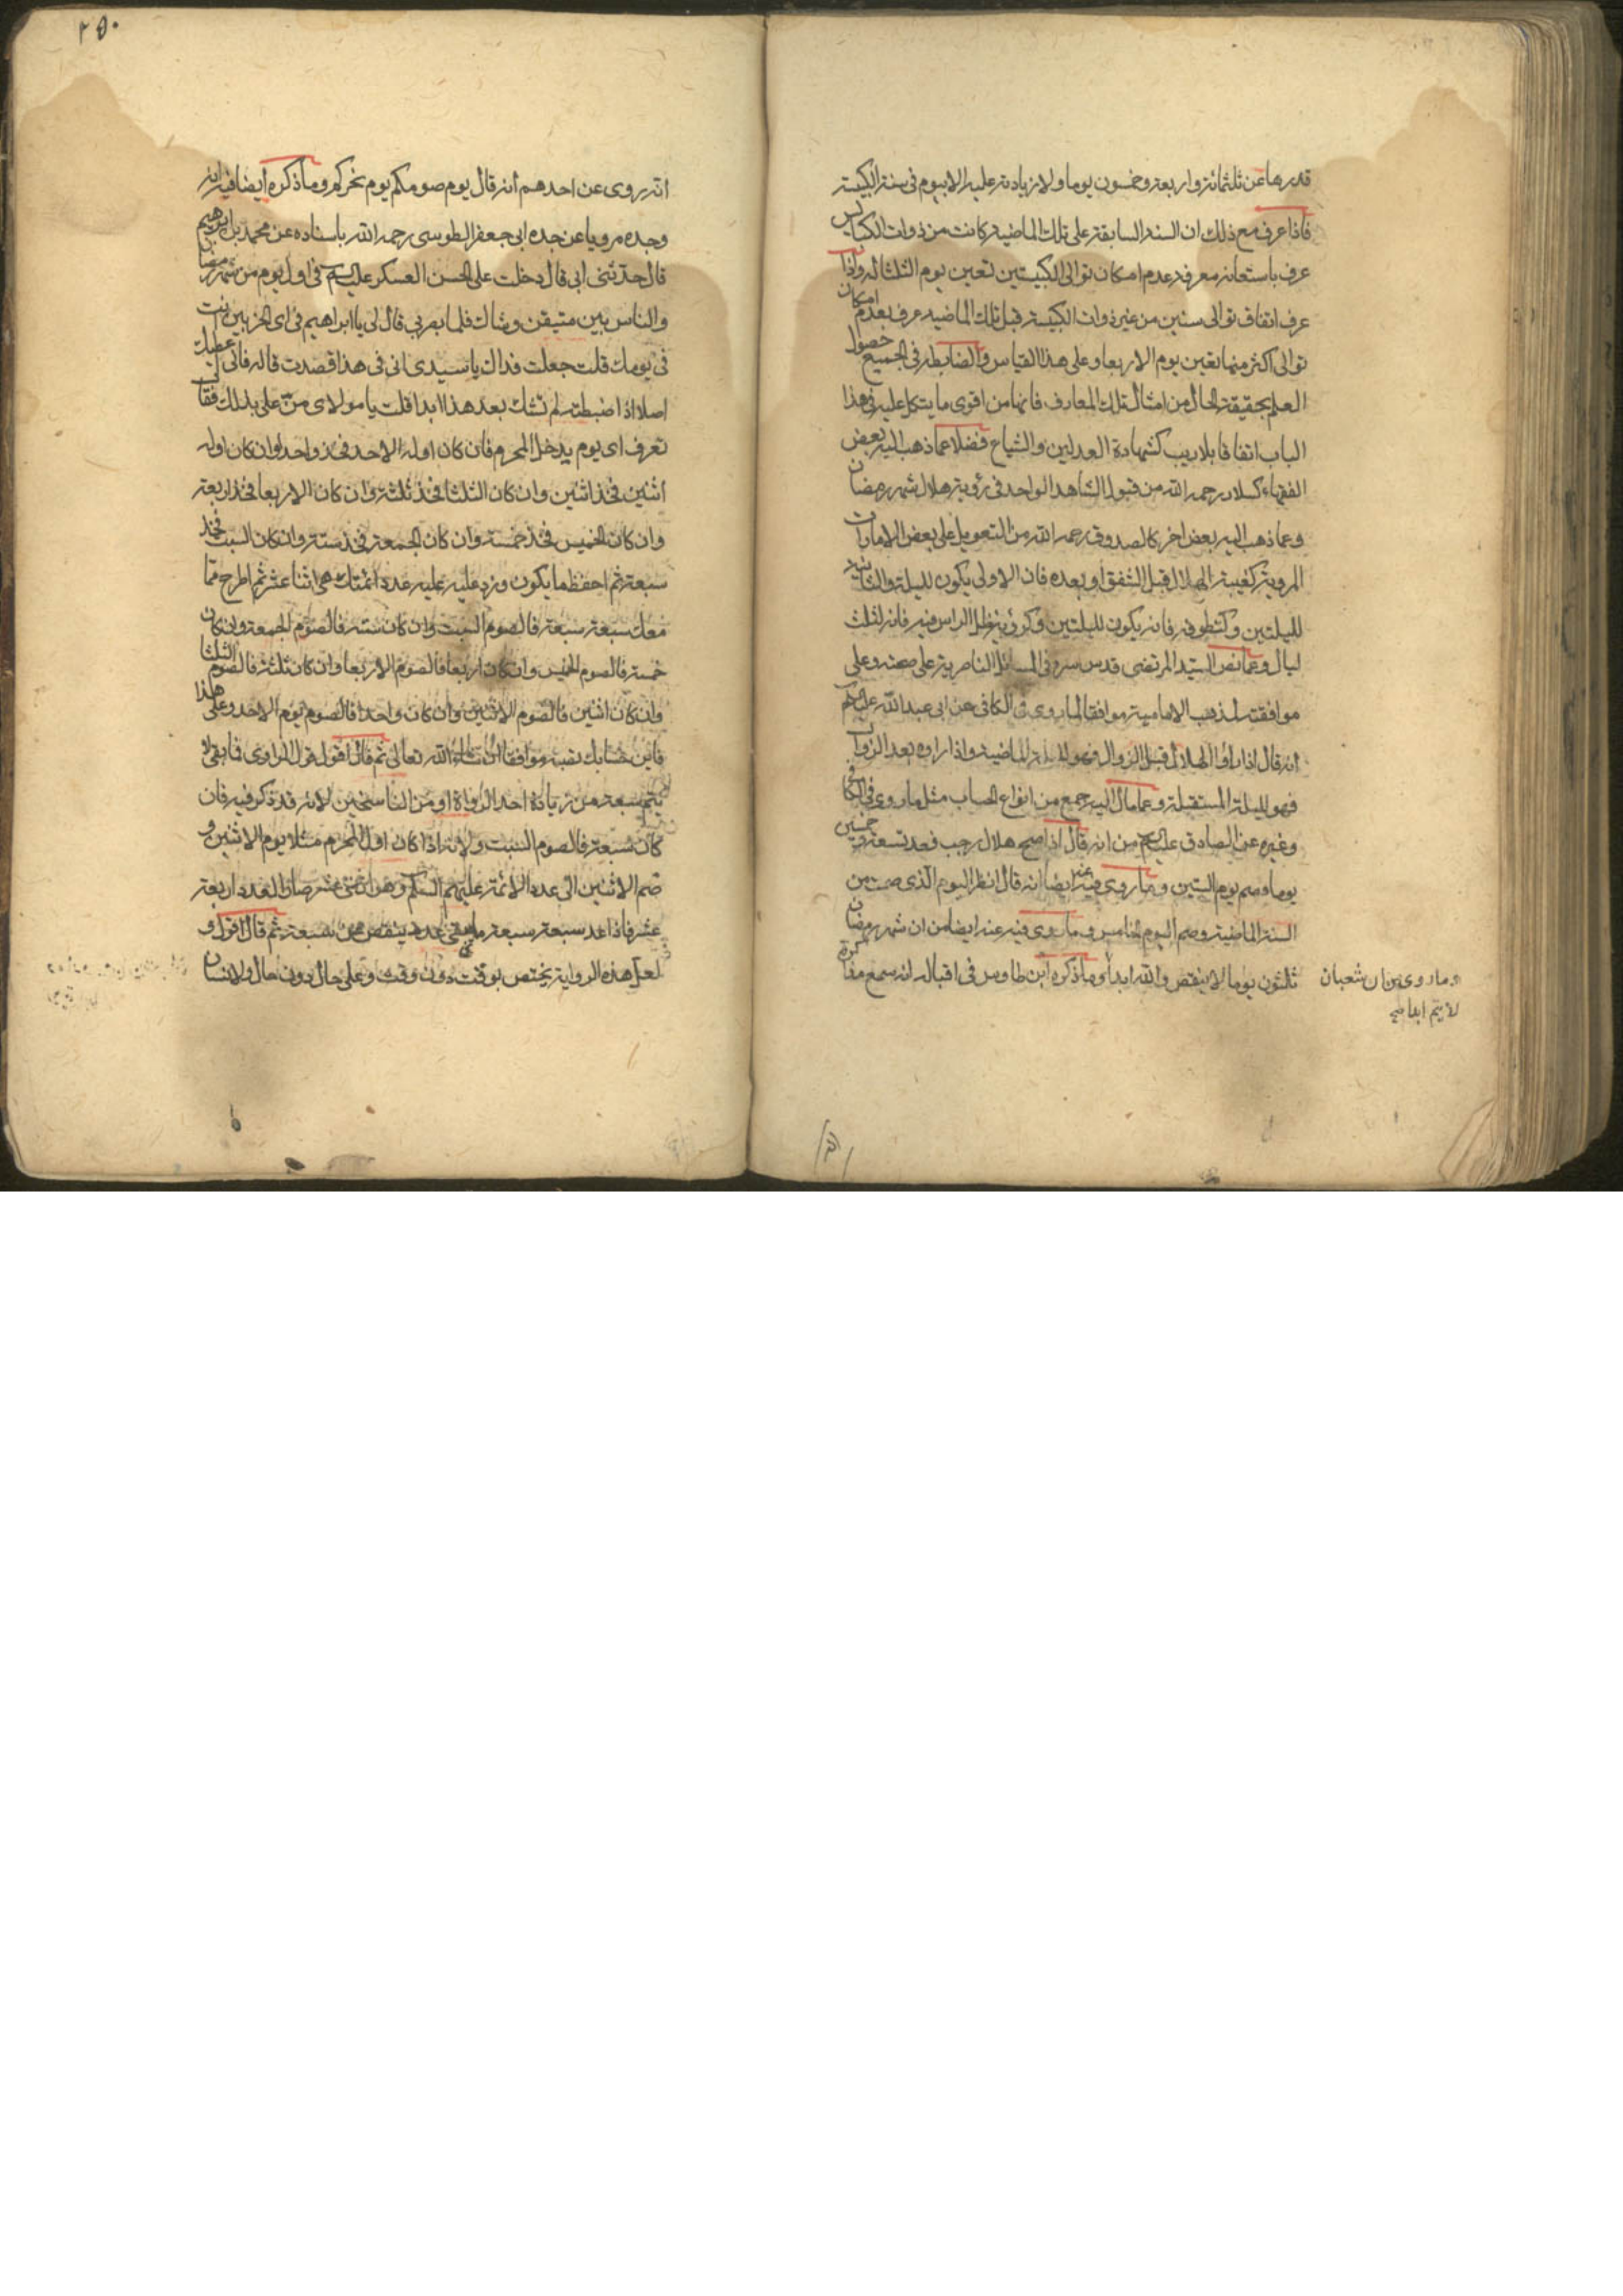 قدرها عن ثلثمائة واربعة وخمسون يوما ولا زيادة عليه الا بيوم فى سنة الكبيسة
فاذا عرف مع ذلك ان السنة السابقة على تلك الماضية كانت من ذوات الكبايس
عرف باستعانة معرفة عدم امكان توالى الكبيستين تعين يوم الثلثا له واذا
عرف اتفاق توالى سنتين من غير ذوات الكبيسة قبل تلك الماضية عرف بعدم امكان
توالى اكثر منها تعين يوم الاربعا وعلى هذا القياس والضابطة فى الجميع حصول
العلم بحقيقة الحال من امثال تلك المعارف فانها من اقوى ما يتكل عليه فى هذا
الباب اتفاقا بلا ريب كشهادة العدلين والشياع فضلا عما ذهب اليه بعض
الفقهاء كسلار رحمه الله من قبول الشاهد الواحد فى رؤية هلال شهر رمضان
وعما ذهب اليه بعض اخر كالصدوق رحمه الله من التعويل على بعض الامارات
المروية كغيبة الهلال قبل الشفق او بعده فان الاولى يكون لليلة والثانية
لليلتين وكتطوقه فانه يكون لليلتين وكرؤية ظل الراس فيه فانه لثلث
ليال وعما نص السيد المرتضى قدس سره فى المسائل الناصرية على صحته وعلى
موافقته لمذهب الامامية موافقا لما روى فى الكافى عن ابى عبد الله عليه السلام
انه قال اذا راوا الهلال قبل الزوال فهو لليلة الماضية واذا راوه بعد الزوال
فهو لليلة المستقبلة وعما مال اليه جمع من انواع الحساب مثل ما روى فى الكافى
وغيره عن الصادق عليه السلام من انه قال اذا صح هلال رجب فعد تسعة وخمسين
يوما وصم يوم الستين وما روى فيه عنه ايضا انه قال انظر اليوم الذى صمت من
السنة الماضية وصم اليوم الخامس وما روى فيه عنه ايضا من ان شهر رمضان
ثلثون يوما لا ينقص والله ابدا وما ذكره ابن طاوس فى اقباله انه سمع مذاكرة
وما روى من ان شعبان
لا يتم ابدا صح
٢٥٠
انه روى عن احدهم انه قال يوم صومكم يوم نحركم وما ذكره ايضا فيه انه
وجده مرويا عن جده ابى جعفر الطوسى رحمه الله باسناده عن محمد بن ابرهيم
قال حدثنى ابى قال دخلت على الحسن العسكر عليه السلام فى اول يوم من شهر رمضان
والناس بين متيقن وشاك فلما بصر بى قال لى يا ابراهيم فى اى الحزبين انت
فى يومك قلت جعلت فداك يا سيدى انى فى هذا قصدت قال فانى اعطيك
اصلا اذا ضبطته لم تشك بعد هذا ابدا قلت يا مولاى من على بذلك فقال
تعرف اى يوم يدخل المحرم فان كان اوله الاحد فخذ واحدا وان كان اوله
اثنين فخذ اثنين وان كان الثلثا فخذ ثلثة وان كان الاربعا فخذ اربعة
وان كان الخميس فخذ خمسة وان كان الجمعة فخذ ستة وان كان السبت فخذ
سبعة ثم احفظ ما يكون وزد عليه عدد ائمتك هى اثنا عشر ثم اطرح مما
معك سبعة سبعة فالصوم السبت وان كان ستة فالصوم الجمعة وان كان
خمسة فالصوم الخميس وان كان اربعا فالصوم الاربعا وان كان ثلثة فالصوم الثلثا
وان كان اثنين فالصوم الاثنين وان كان واحدا فالصوم يوم الاحد وعلى هذا
فابن حسابك تصبه موافقا ان شاء الله تعالى ثم قال اقول قول الراوى فابقى لا
يتم سبعة من زيادة احد الرواة او من الناسخين لانه قد ذكر فيه فان
كان سبعة فالصوم السبت ولانه اذا كان اول المحرم مثلا يوم الاثنين و
ضم الاثنين الى عدد الائمة عليهم السلم وهى اثنى عشر صار العدد اربعة
عشر فاذا عد سبعة سبعة ما بقى عدد ينقص من سبعة ثم قال اقول و
لعل هذه الرواية يختص بوقت دون وقت وعلى حال دون حال ولانسان